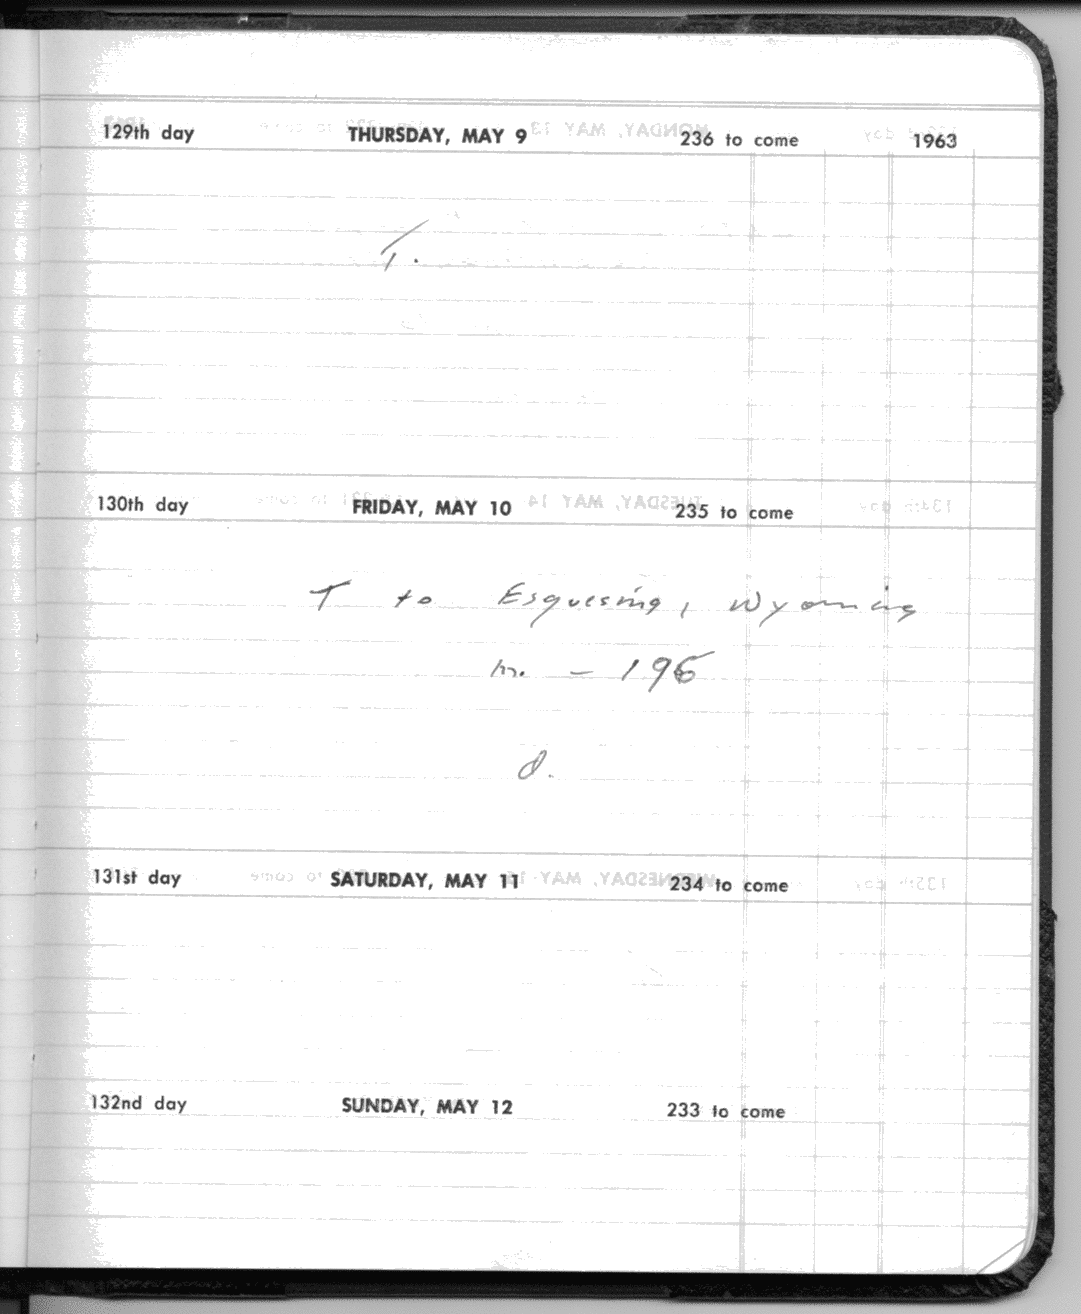 129th day THURSDAY, MAY 9 236 to come 1963
T.
130th day FRIDAY, MAY 10 235 to come
T to Esquesing, Wyoming
m. - 196
d.
131st day SATURDAY, MAY 11 234 to come
132nd day SUNDAY, MAY 12 233 to come